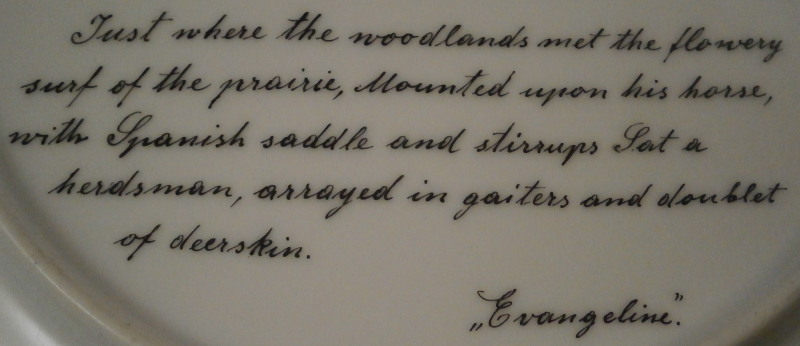 Just where the woodlands met the flowery
surf of the prairie, Mounted upon his horse,
with Spanish saddle and stirrups Sat a
herdsman, arrayed in gaiters and doublet
of deerskin.
„Evangeline”.